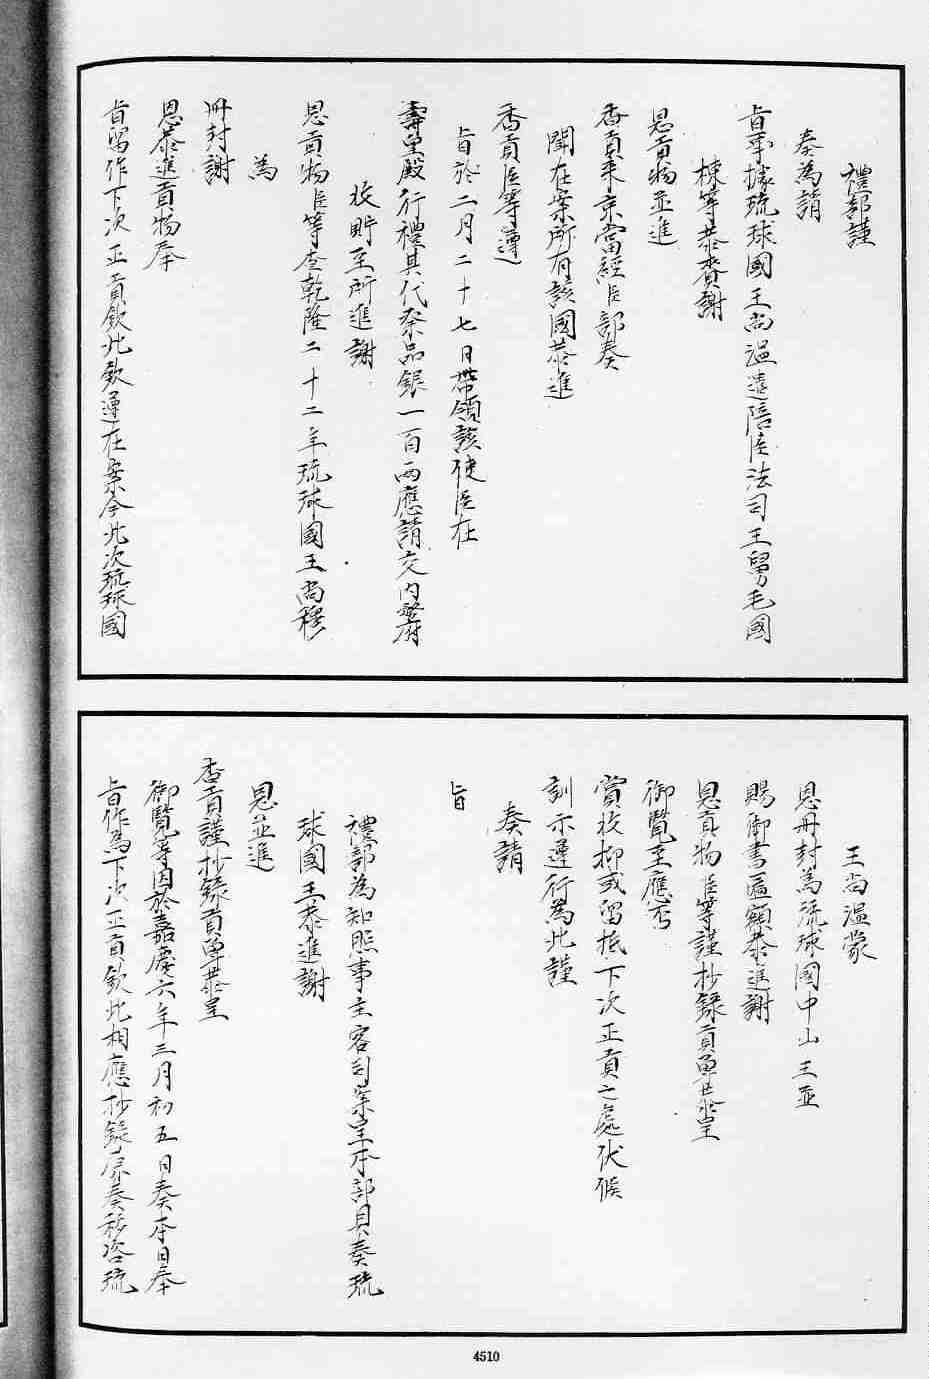 禮部謹
奏為請
旨事據琉球國王尚溫遣陪臣法司王舅毛國
棟等恭賫謝
恩貢物並進
香貢來京當經臣部奏
聞在案所有該國恭進
香貢臣等遵
旨於二月二十七日帶領該使臣在
壽皇殿行禮其代祭品銀一百兩應請交內務府
收貯至所進謝
恩貢物臣等查乾隆二十二年琉球國王尚穆
為
冊封謝
恩恭進貢物奉
旨留作下次正貢欽此欽遵在案今此次琉球國
王尚溫蒙
恩冊封為流球國中山王並
賜御書匾額恭進謝
恩貢物臣等謹抄錄貢單恭呈
御覽至應否
賞收抑或留抵下次正貢之處伏候
訓示遵行為此謹
奏請
旨
禮部為知照事主客司案呈本部具奏琉
球國王恭進謝
恩並進
香貢謹抄錄貢單恭呈
御覽等因於嘉慶六年三月初五日奏本日奉
旨作為下次正貢欽此相應抄錄原奏移咨琉
4510